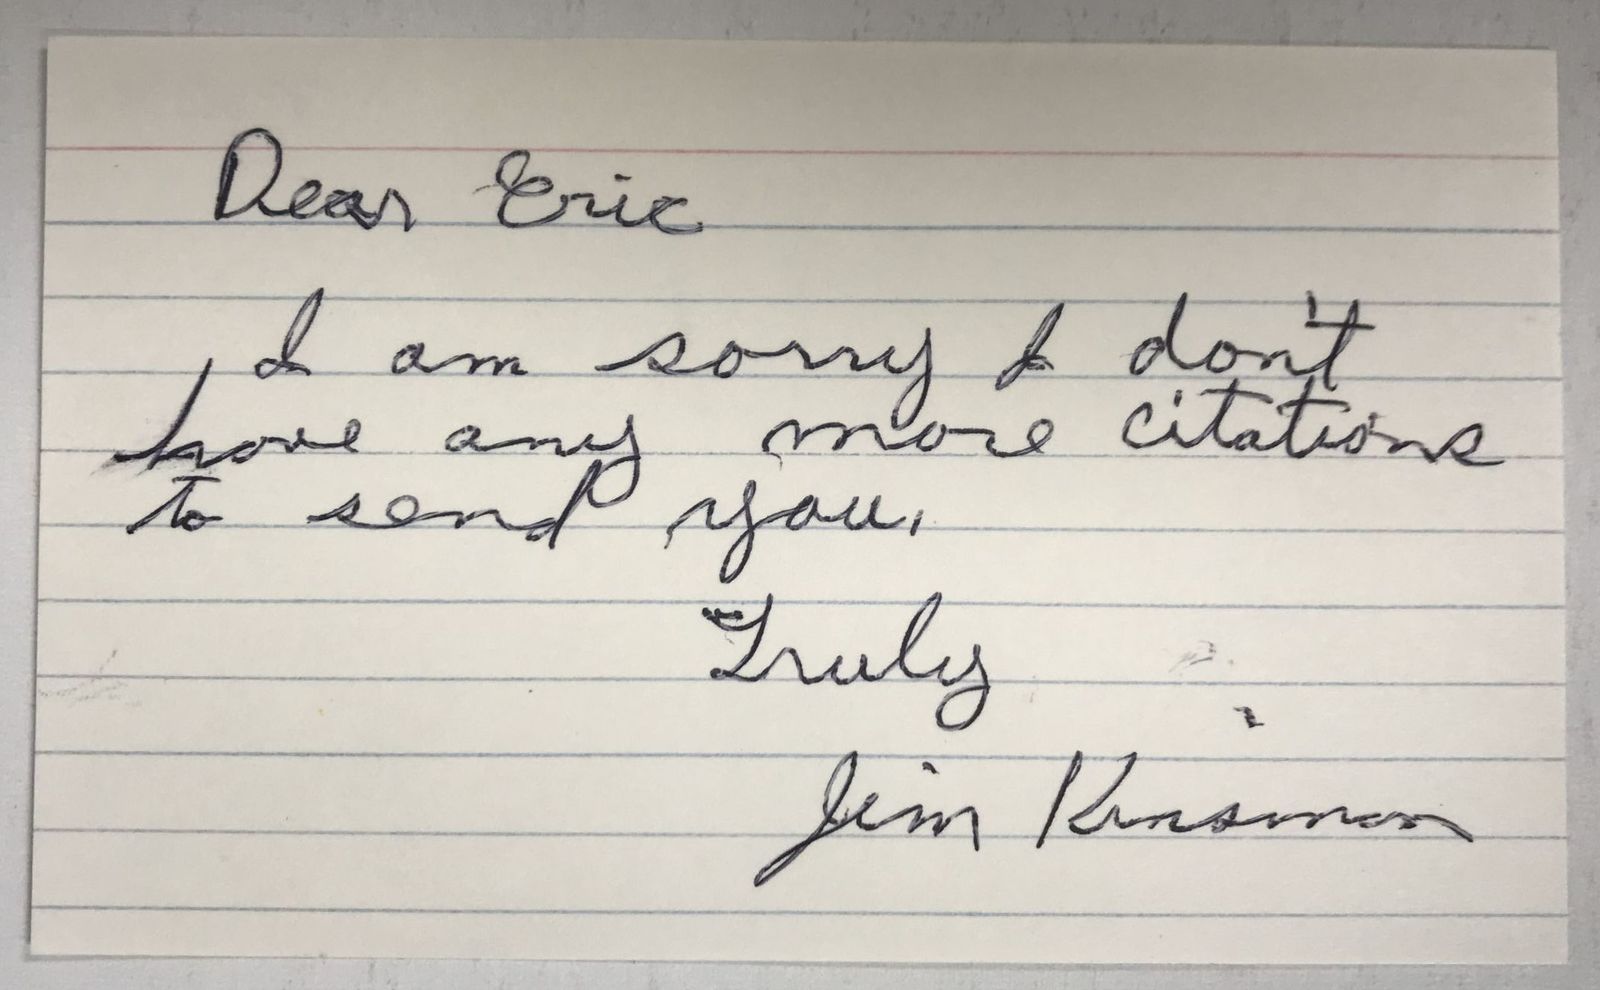 Dear Eric
I am sorry I don't
have any more citations
to send you.
Truly
Jim Kinsman